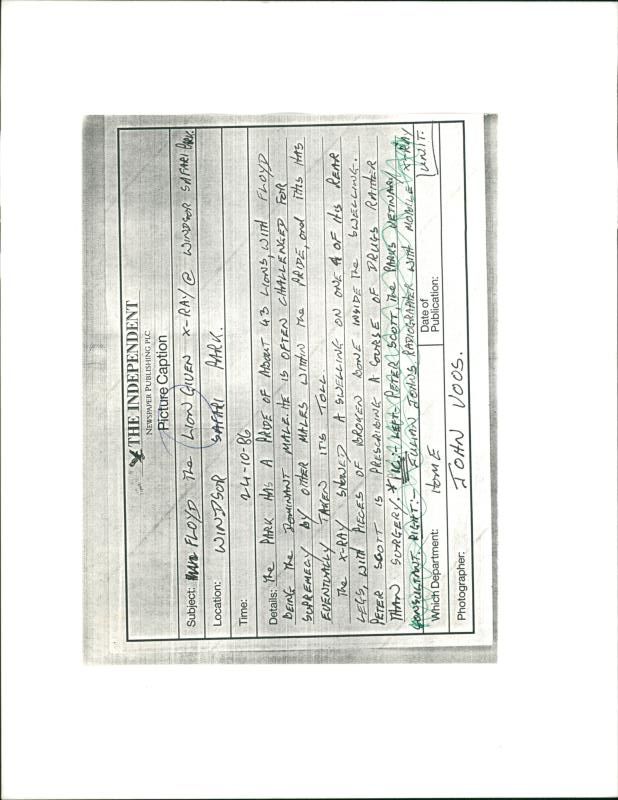 THE INDEPENDENT
NEWSPAPER PUBLISHING PLC
Picture Caption
Subject: FLOYD the LION GIVEN X-RAY @ WINDSOR SAFARI PARK.
Location: WINDSOR SAFARI PARK.
Time: 24-10-86
Details: The PARK HAS A PRIDE OF ABOUT 43 LIONS, WITH FLOYD
BEING the DOMINANT MALE. HE IS OFTEN CHALLENGED FOR
SUPREMECY BY OTHER MALES WITHIN the PRIDE, and this HAS
EVENTUALLY TAKEN ITS TOLL.
The X-RAY SHOWED A SWELLING ON ONE OF HIS REAR
LEGS, WITH PIECES OF BROKEN BONE INSIDE the SWELLING.
PETER SCOTT IS PRESCRIBING A COURSE OF DRUGS RATHER
THAN SURGERY. * LEFT PETER SCOTT, the PARKS VETINARY
CONSULTANT. RIGHT:- JULIAN JOHNS RADIOGRAPHER WITH MOBILE X-RAY
UNIT.
Which Department: HOME
Date of Publication:
Photographer: JOHN VOOS.